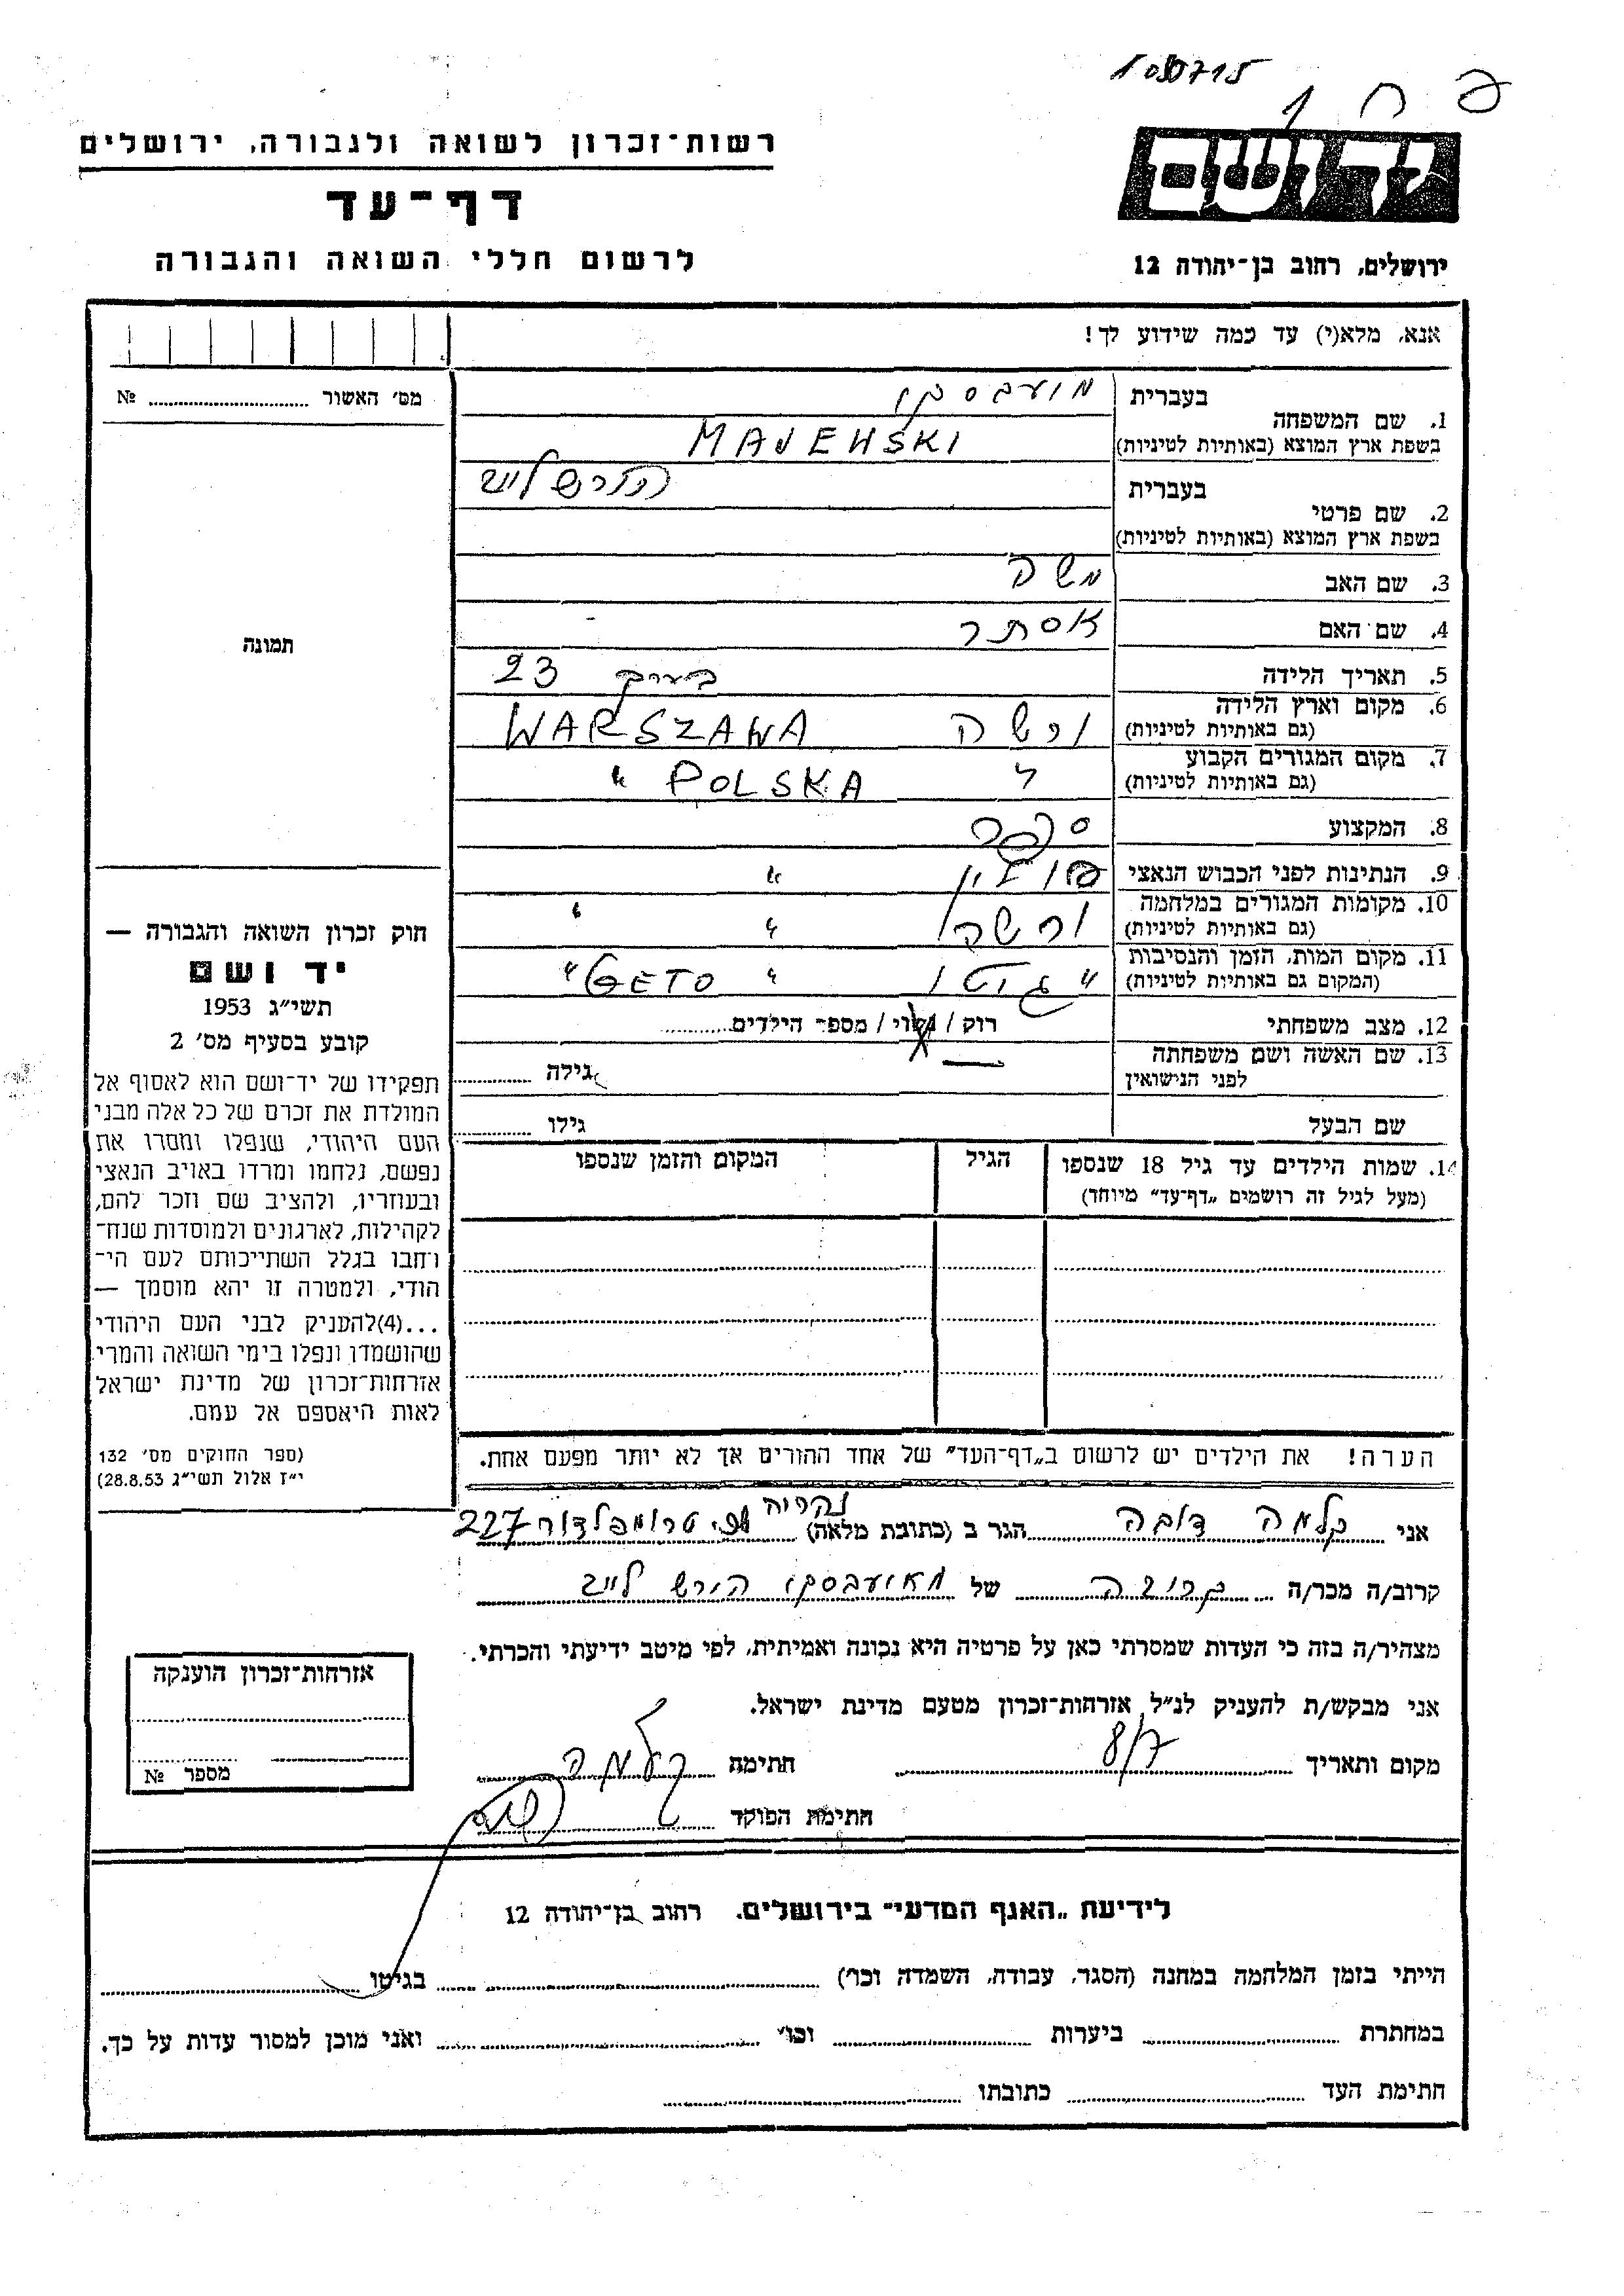 1050715
פ ח ו
יד ושם
רשות־זכרון לשואה ולגבורה, ירושלים
דף־עד
לרשום חללי השואה והגבורה
ירושלים, רחוב בן־יהודה 12
אנא, מלא(י) עד כמה שידוע לך!
מס׳ האשור № 
1. שם המשפחה
בעברית
בשפת ארץ המוצא (באותיות לטיניות)
MAJEWSKI
2. שם פרטי
בעברית הירש לייב
בשפת ארץ המוצא (באותיות לטיניות)
3. שם האב משה
4. שם האם אסתר
תמונה
5. תאריך הלידה בערך 23
6. מקום וארץ הלידה (גם באותיות לטיניות) ורשה WARSZAWA
7. מקום המגורים הקבוע (גם באותיות לטיניות) " POLSKA "
8. המקצוע ספר
9. הנתינות לפני הכבוש הנאצי פולין "
10. מקומות המגורים במלחמה (גם באותיות לטיניות) ורשה " "
11. מקום המות, הזמן והנסיבות (המקום גם באותיות לטיניות) " גיטו " GETO "
12. מצב משפחתי רוק / נשוי / מספר הילדים
13. שם האשה ושם משפחתה לפני הנישואין — גילה
שם הבעל גילו
14. שמות הילדים עד גיל 18 שנספו
(מעל לגיל זה רושמים „דף־עד” מיוחד)
הגיל
המקום והזמן שנספו
חוק זכרון השואה והגבורה —
יד ושם
תשי״ג 1953
קובע בסעיף מס׳ 2
תפקידו של יד־ושם הוא לאסוף אל
המולדת את זכרם של כל אלה מבני
העם היהודי, שנפלו ומסרו את
נפשם, נלחמו ומרדו באויב הנאצי
ובעוזריו, ולהציב שם וזכר להם,
לקהילות, לארגונים ולמוסדות שנח־
רחבו בגלל השתייכותם לעם הי־
הודי, ולמטרה זו יהא מוסמך —
...(4)להעניק לבני העם היהודי
שהושמדו ונפלו בימי השואה והמרי
אזרחות־זכרון של מדינת ישראל
לאות היאספם אל עמם.
(ספר החוקים מס׳ 132
י״ז אלול תשי״ג 28.8.53)
הערה! את הילדים יש לרשום ב„דף־העד” של אחד ההורים אך לא יותר מפעם אחת.
נהריה
אני קלמה דובה הגר ב (כתובת מלאה) טרומפלדור 227
קרוב/ה מכר/ה קרובה של מאיעבסקי הירש לייב
מצהיר/ה בזה כי העדות שמסרתי כאן על פרטיה היא נכונה ואמיתית, לפי מיטב ידיעתי והכרתי.
אני מבקש/ת להעניק לנ״ל אזרחות־זכרון מטעם מדינת ישראל.
מקום ותאריך 8/7 חתימה קלמה
חתימת הפוקד
אזרחות־זכרון הוענקה
מספר №
לידיעת „האגף המדעי” בירושלים, רחוב בן־יהודה 12
הייתי בזמן המלחמה במחנה (הסגר, עבודה, השמדה וכו׳) בגיטו
במחתרת ביערות וכו׳ ואני מוכן למסור עדות על כך.
חתימת העד כתובתו